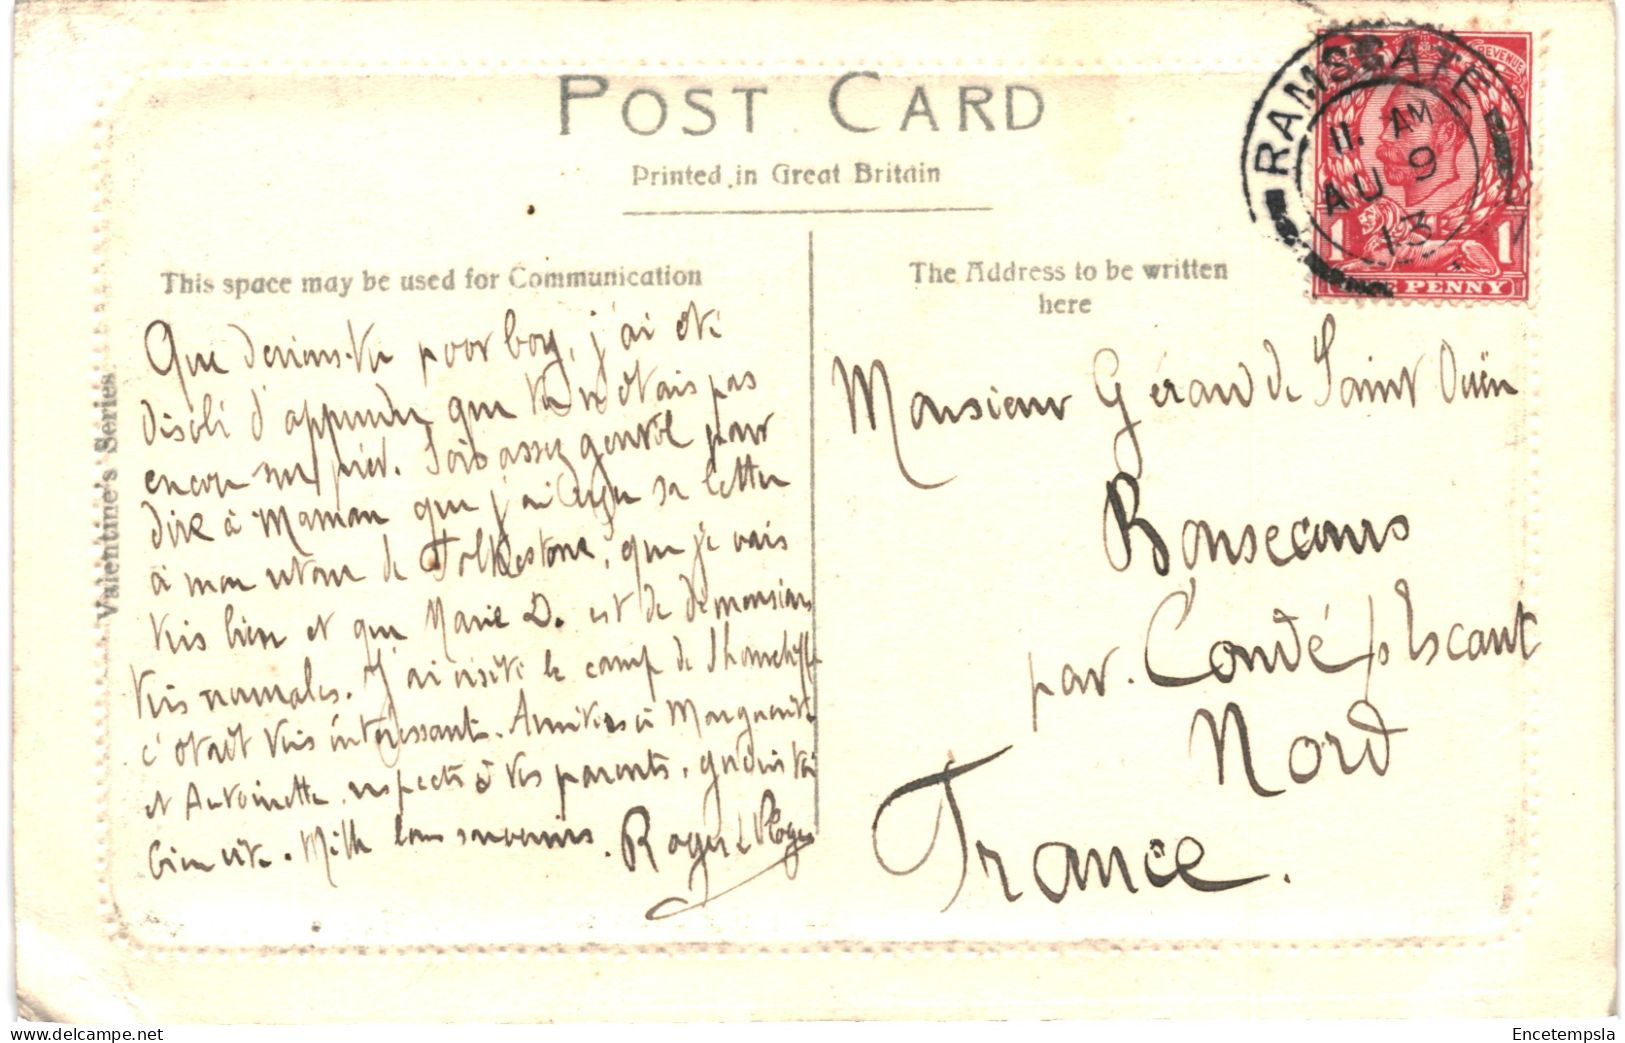 POST CARD
Printed in Great Britain
RAMSGATE
11. AM
AU 9
13
REVENUE
1 1
ONE PENNY
Valentine's Series.
This space may be used for Communication
The Address to be written
here
Que deviens-tu poor boy, j'ai été
désolé d'apprendre que tu n'étais pas
encore sur pied. Sois assez gentil pour
dire à Maman que j'ai reçu sa lettre
à mon retour de Folkestone, que je vais
très bien et que Marie D. est de dimensions
très normales. J'ai visité le camp de
c'était très intéressant. Amitiés à Marguerite
et Antoinette, respects à tes parents, guéris toi
bien vite. Mille bons souvenirs. Roger
Monsieur Gérard de Saint Ouën
Bonsecours
par. Condé s/ Escaut
Nord
France.
Encetempsla